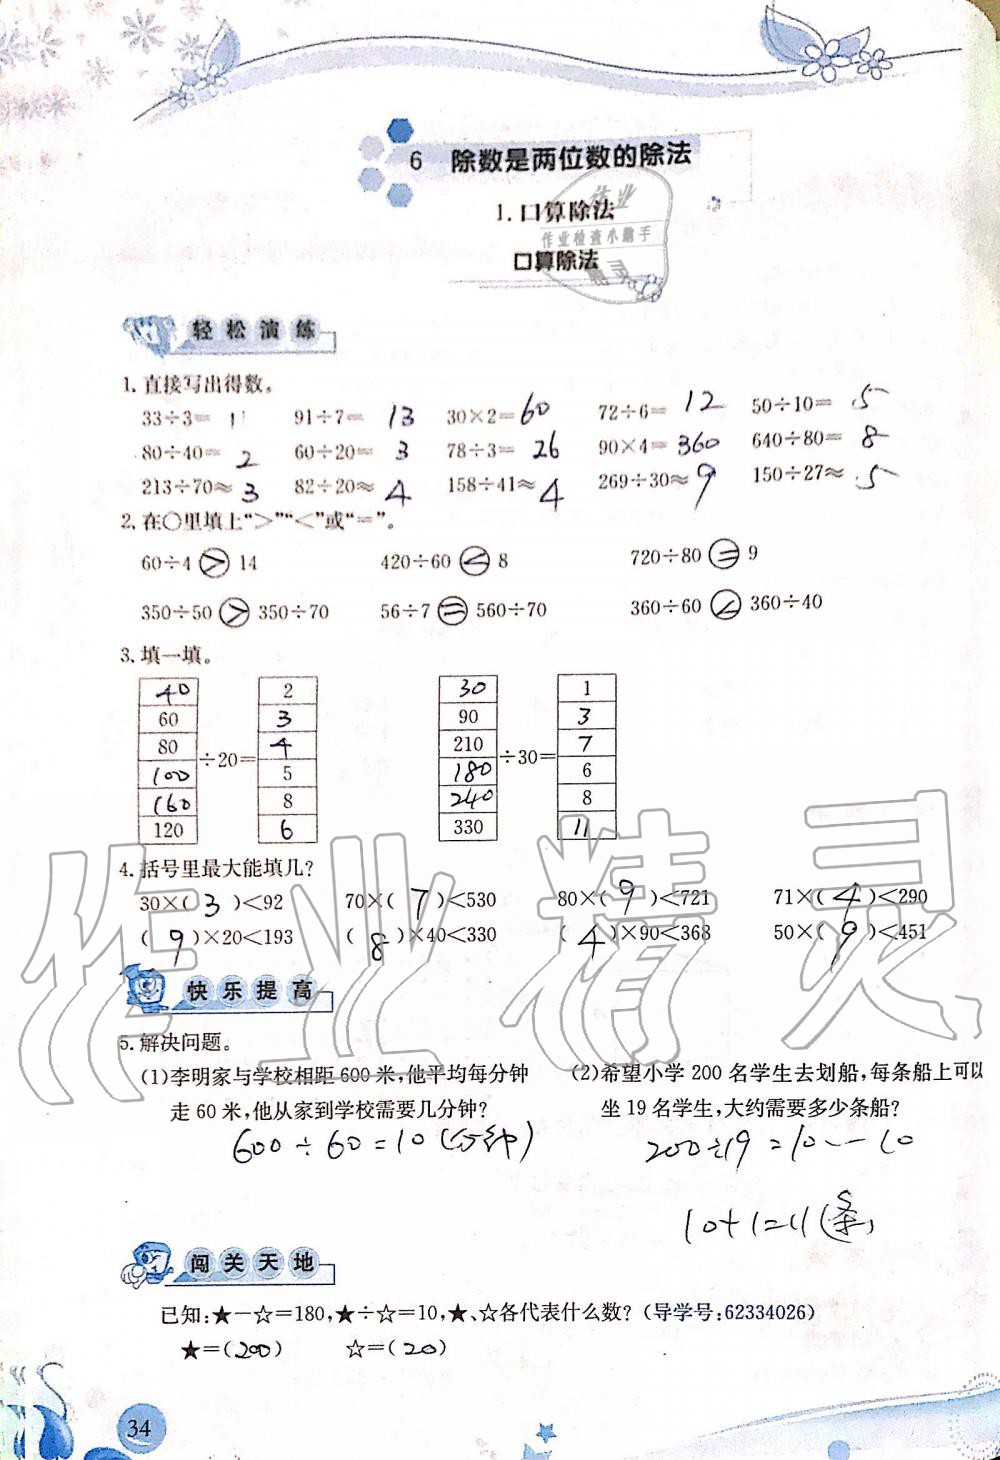 6 除数是两位数的除法
1.口算除法
作业
作业检查小助手
精灵
口算除法
轻松演练
1.直接写出得数。
33÷3=11 91÷7=13 30×2=60 72÷6=12 50÷10=5
80÷40=2 60÷20=3 78÷3=26 90×4=360 640÷80=8
213÷70≈3 82÷20≈4 158÷41≈4 269÷30≈9 150÷27≈5
2.在○里填上“>”“<”或“=”。
60÷4>14 420÷60<8 720÷80=9
350÷50>350÷70 56÷7=560÷70 360÷60<360÷40
3.填一填。
40 2 30 1
60 3 90 3
80 4 210 7
÷20= ÷30=
100 5 180 6
160 8 240 8
120 6 330 11
4.括号里最大能填几?
30×(3)<92 70×(7)<530 80×(9)<721 71×(4)<290
(9)×20<193 (8)×40<330 (4)×90<368 50×(9)<451
作业精灵
快乐提高
5.解决问题。
(1)李明家与学校相距600米,他平均每分钟
走60米,他从家到学校需要几分钟?
600÷60=10(分钟)
(2)希望小学200名学生去划船,每条船上可以
坐19名学生,大约需要多少条船?
200÷19=10…10
10+1=11(条)
闯关天地
已知:★-☆=180,★÷☆=10,★、☆各代表什么数?(导学号:62334026)
★=(200) ☆=(20)
34